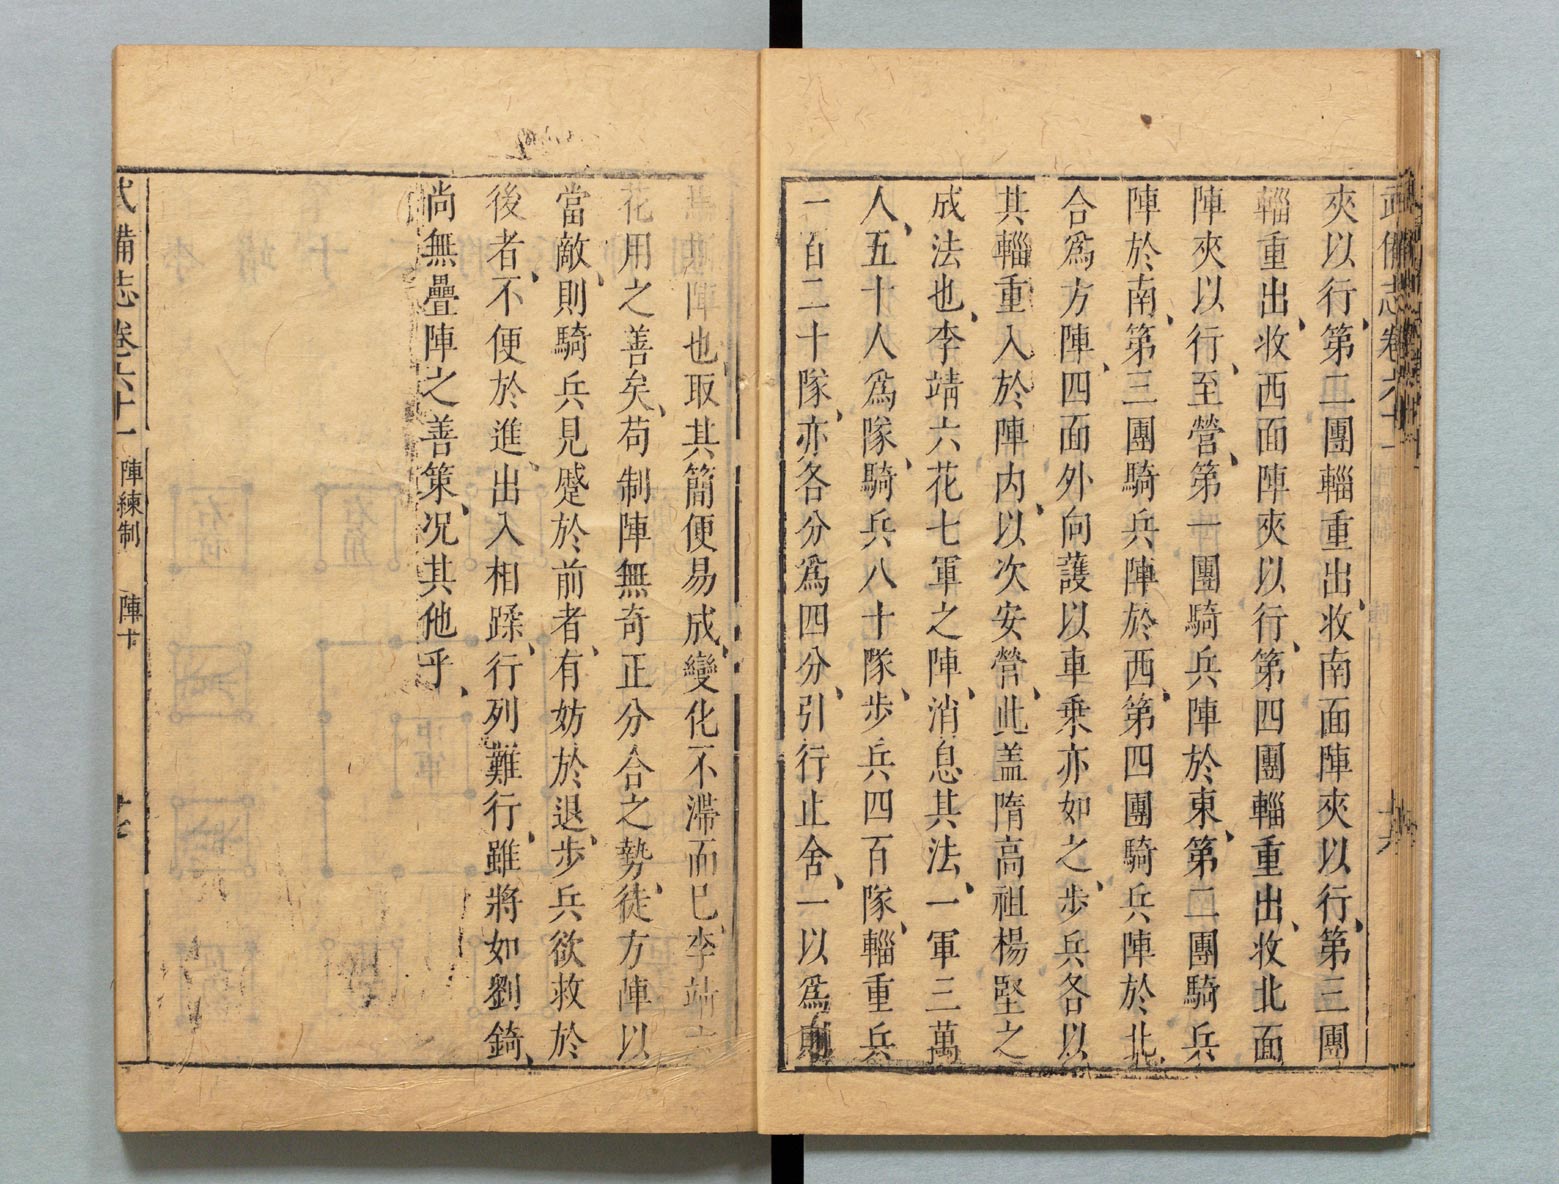 武備志卷六十一
夾以行、第二團輜重出、收南面陣夾以行、第三團
輜重出、收西面陣夾以行、第四團輜重出、收北面
陣夾以行、至營、第一團騎兵陣於東、第二團騎兵
陣於南、第三團騎兵陣於西、第四團騎兵陣於北、
合爲方陣、四面外向護以車乗亦如之、步兵各以
其輜重入於陣内、以次安營、此盖隋高祖楊堅之
成法也、李靖六花七軍之陣、消息其法、一軍三萬
人、五十人爲隊、騎兵八十隊、步兵四百隊、輜重兵
一百二十隊、亦各分爲四分、引行止舍、一以爲則
陣也、取其簡便易成、變化不滯而已、李靖六
花用之善矣、苟制陣無奇正分合之勢、徒方陣以
當敵、則騎兵見蹙於前者、有妨於退、步兵欲救於
後者、不便於進、出入相蹂、行列難行、雖將如劉錡、
尚無疊陣之善策、况其他乎、
武備志卷六十一 陣練制 陣十